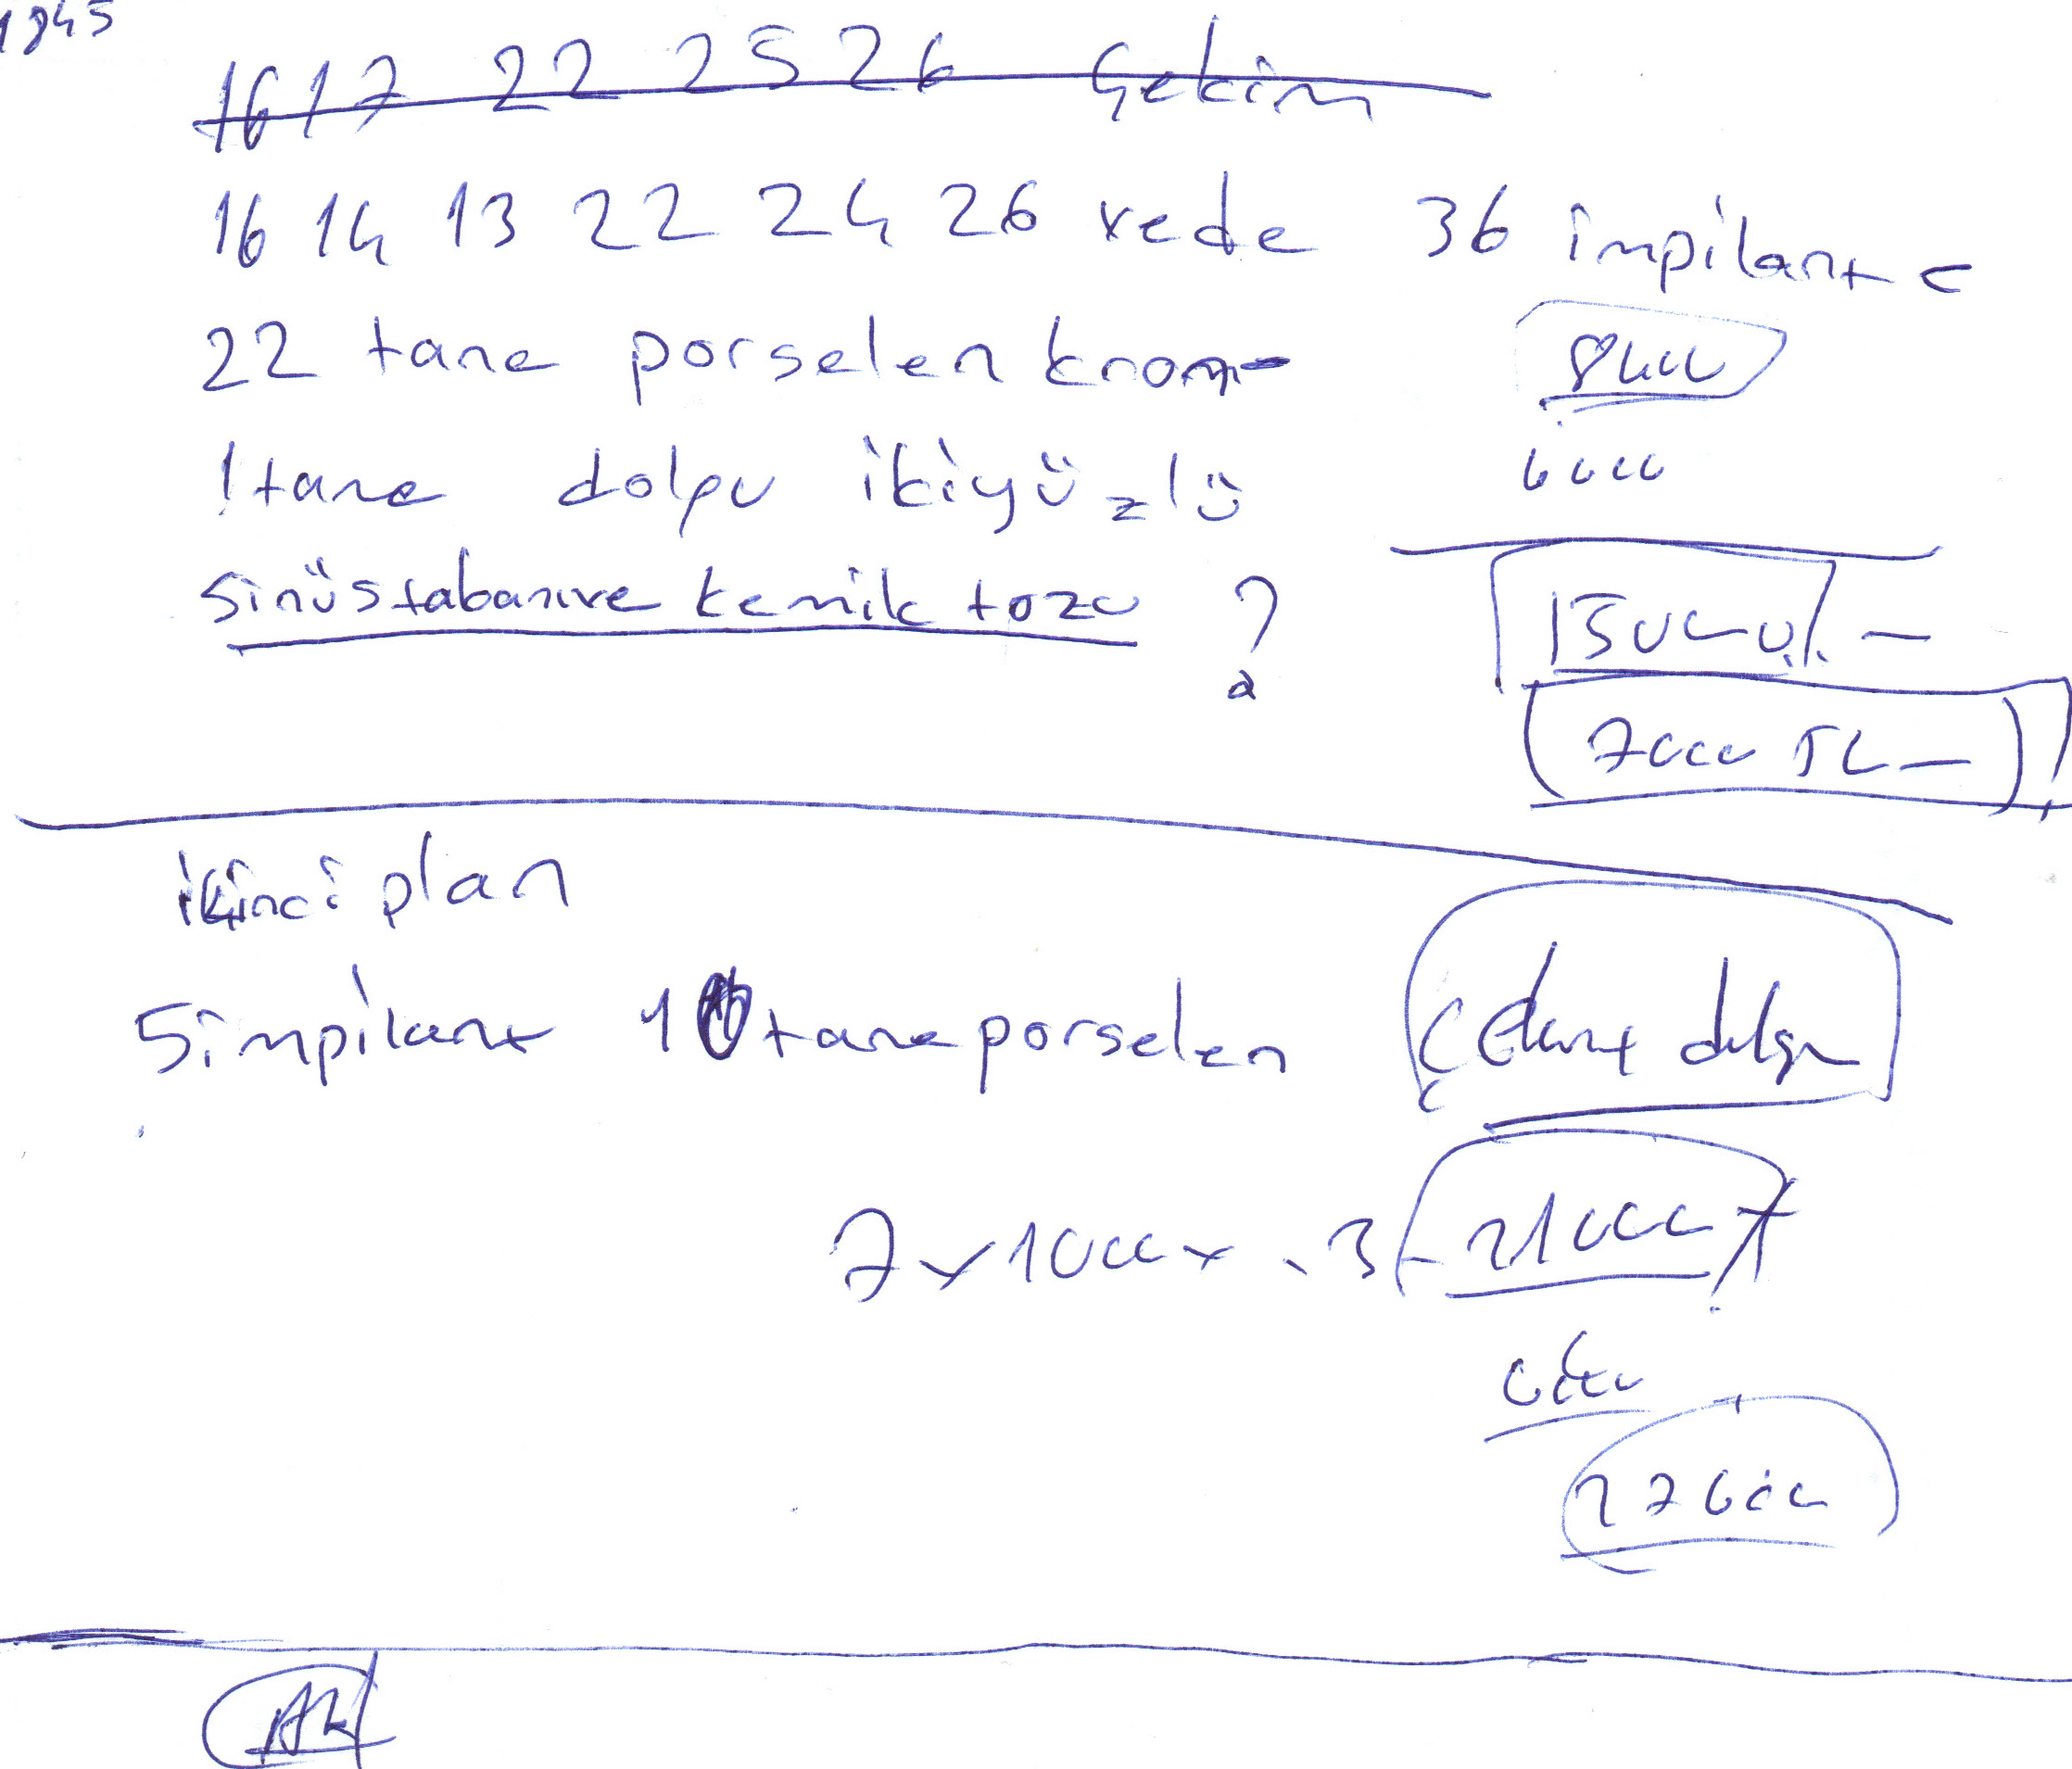 1945
16 17 22 25 26 Çekim
16 14 13 22 24 26 vede 36 impilant
22 tane porselen krom
1 tane dolgu ikiyüzlü
Sinüs tabanı ve kemik tozu ?
15000
7000 TL
ikinci plan
5 impilant 10 tane porselen
7 x 1000 x 3 21000